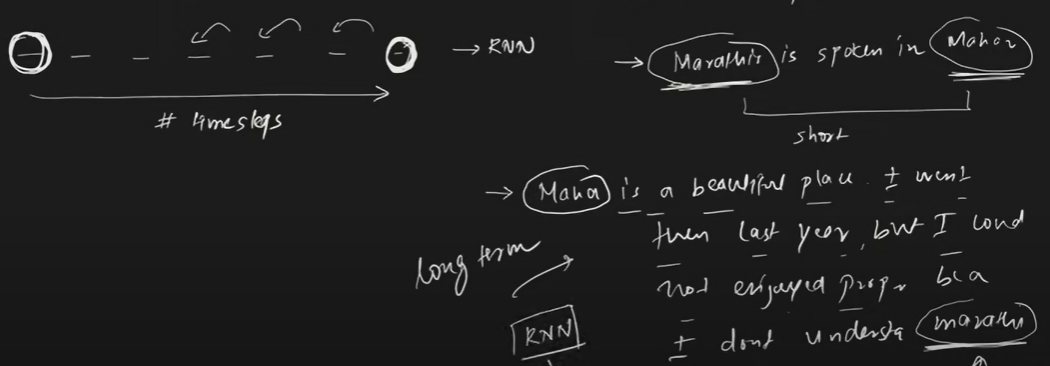 → RNN
# timesteps
→ Marathi is spoken in Mahar
short
→ Maha is a beautiful place. I went
then last year, but I could
not enjoyed prop bcz
I dont understa marathi
long term
RNN